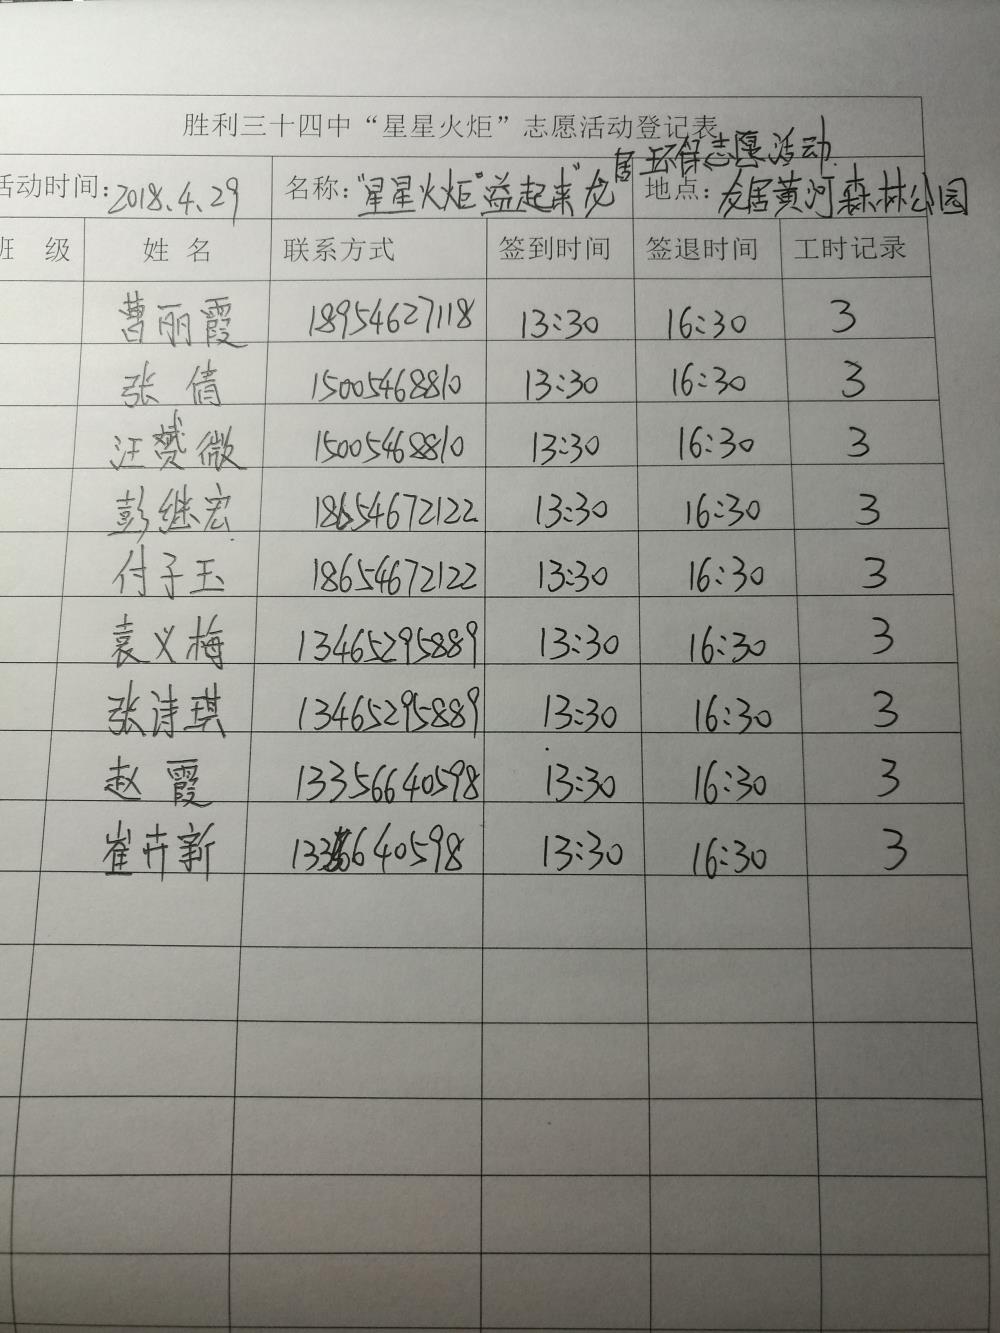 胜利三十四中“星星火炬”志愿活动登记表
居环保志愿活动.
活动时间:2018.4.29 名称:“星星火炬”益起来”龙 地点:龙居黄河森林公园
班 级 姓 名 联系方式 签到时间 签退时间 工时记录
曹丽霞 18954627118 13:30 16:30 3
张 倩 15005468810 13:30 16:30 3
汪赟微 15005468810 13:30 16:30 3
彭继宏 18654672122 13:30 16:30 3
付子玉 18654672122 13:30 16:30 3
袁义梅 13465295889 13:30 16:30 3
张诗琪 13465295889 13:30 16:30 3
赵 霞 13356640598 13:30 16:30 3
崔卉新 13356640598 13:30 16:30 3